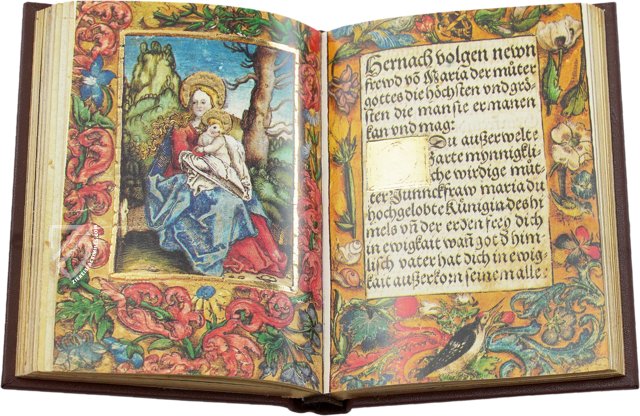 Hernach volgen newn
frewd vō Maria der můter
gottes die höchsten vnd grö
sten die man sie ermanen
kan vnd mag:
Du außerwelte
zarte mynnigkli
che wirdige můt
ter Junnckfraw maria du
hochgelobte Künigia des hi
mels vn̄ der erden frey dich
in ewigkait wan̄ got ð him
lisch vater hat dich in ewig
kait außerkorn seinem alle: